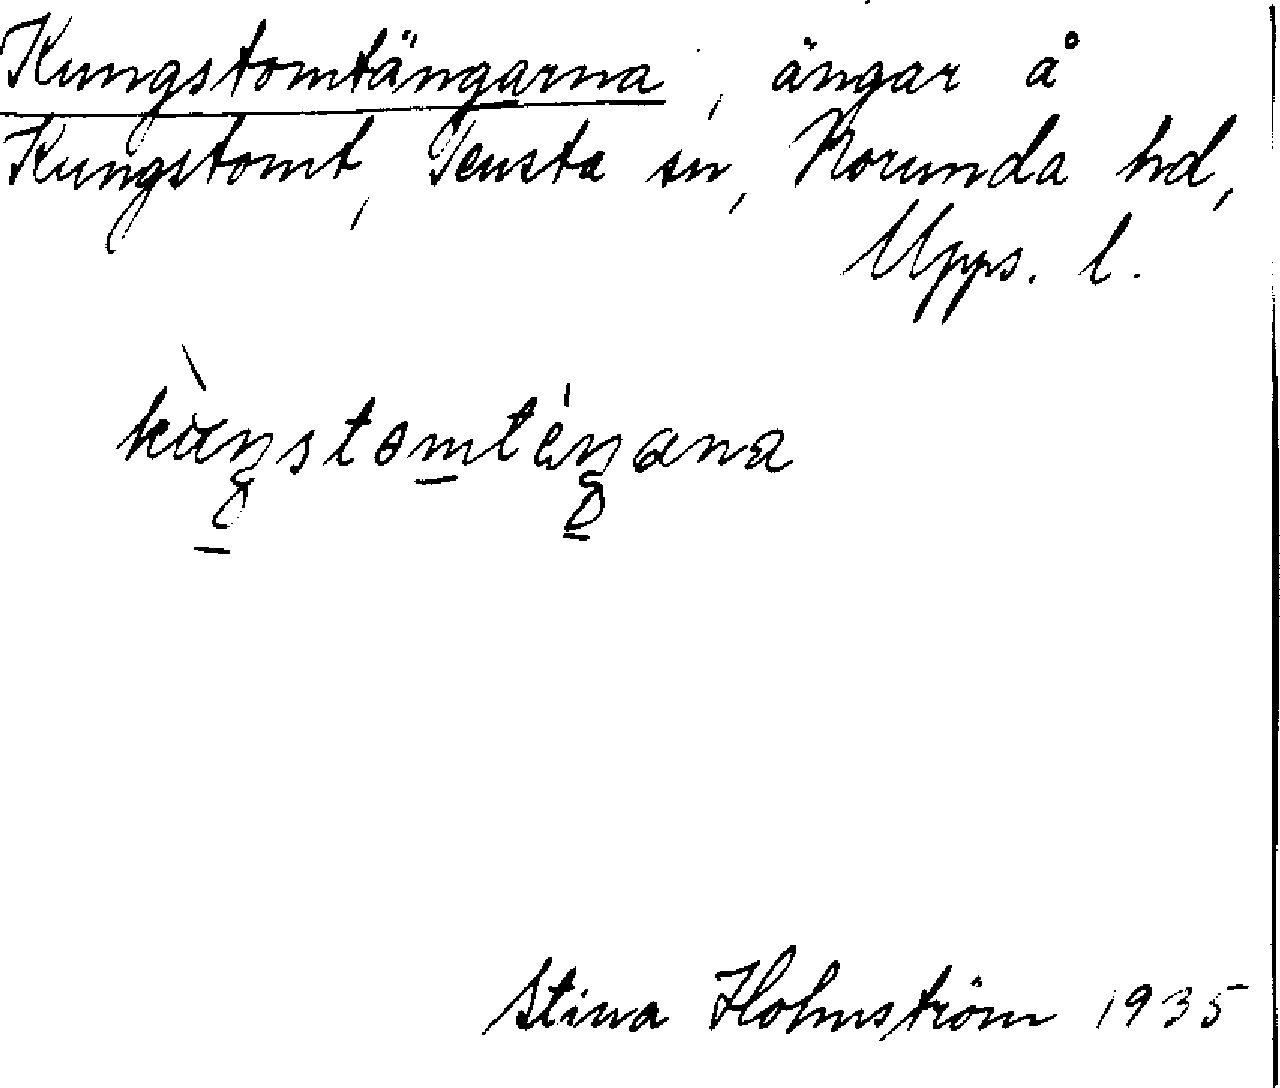 Kungstomtängarna, ängar å
Kungstomt, Tensta sn, Norunda hd,
Upps. l.
Stina Holmström 1935